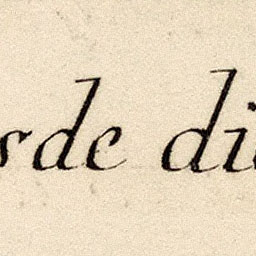 sde di